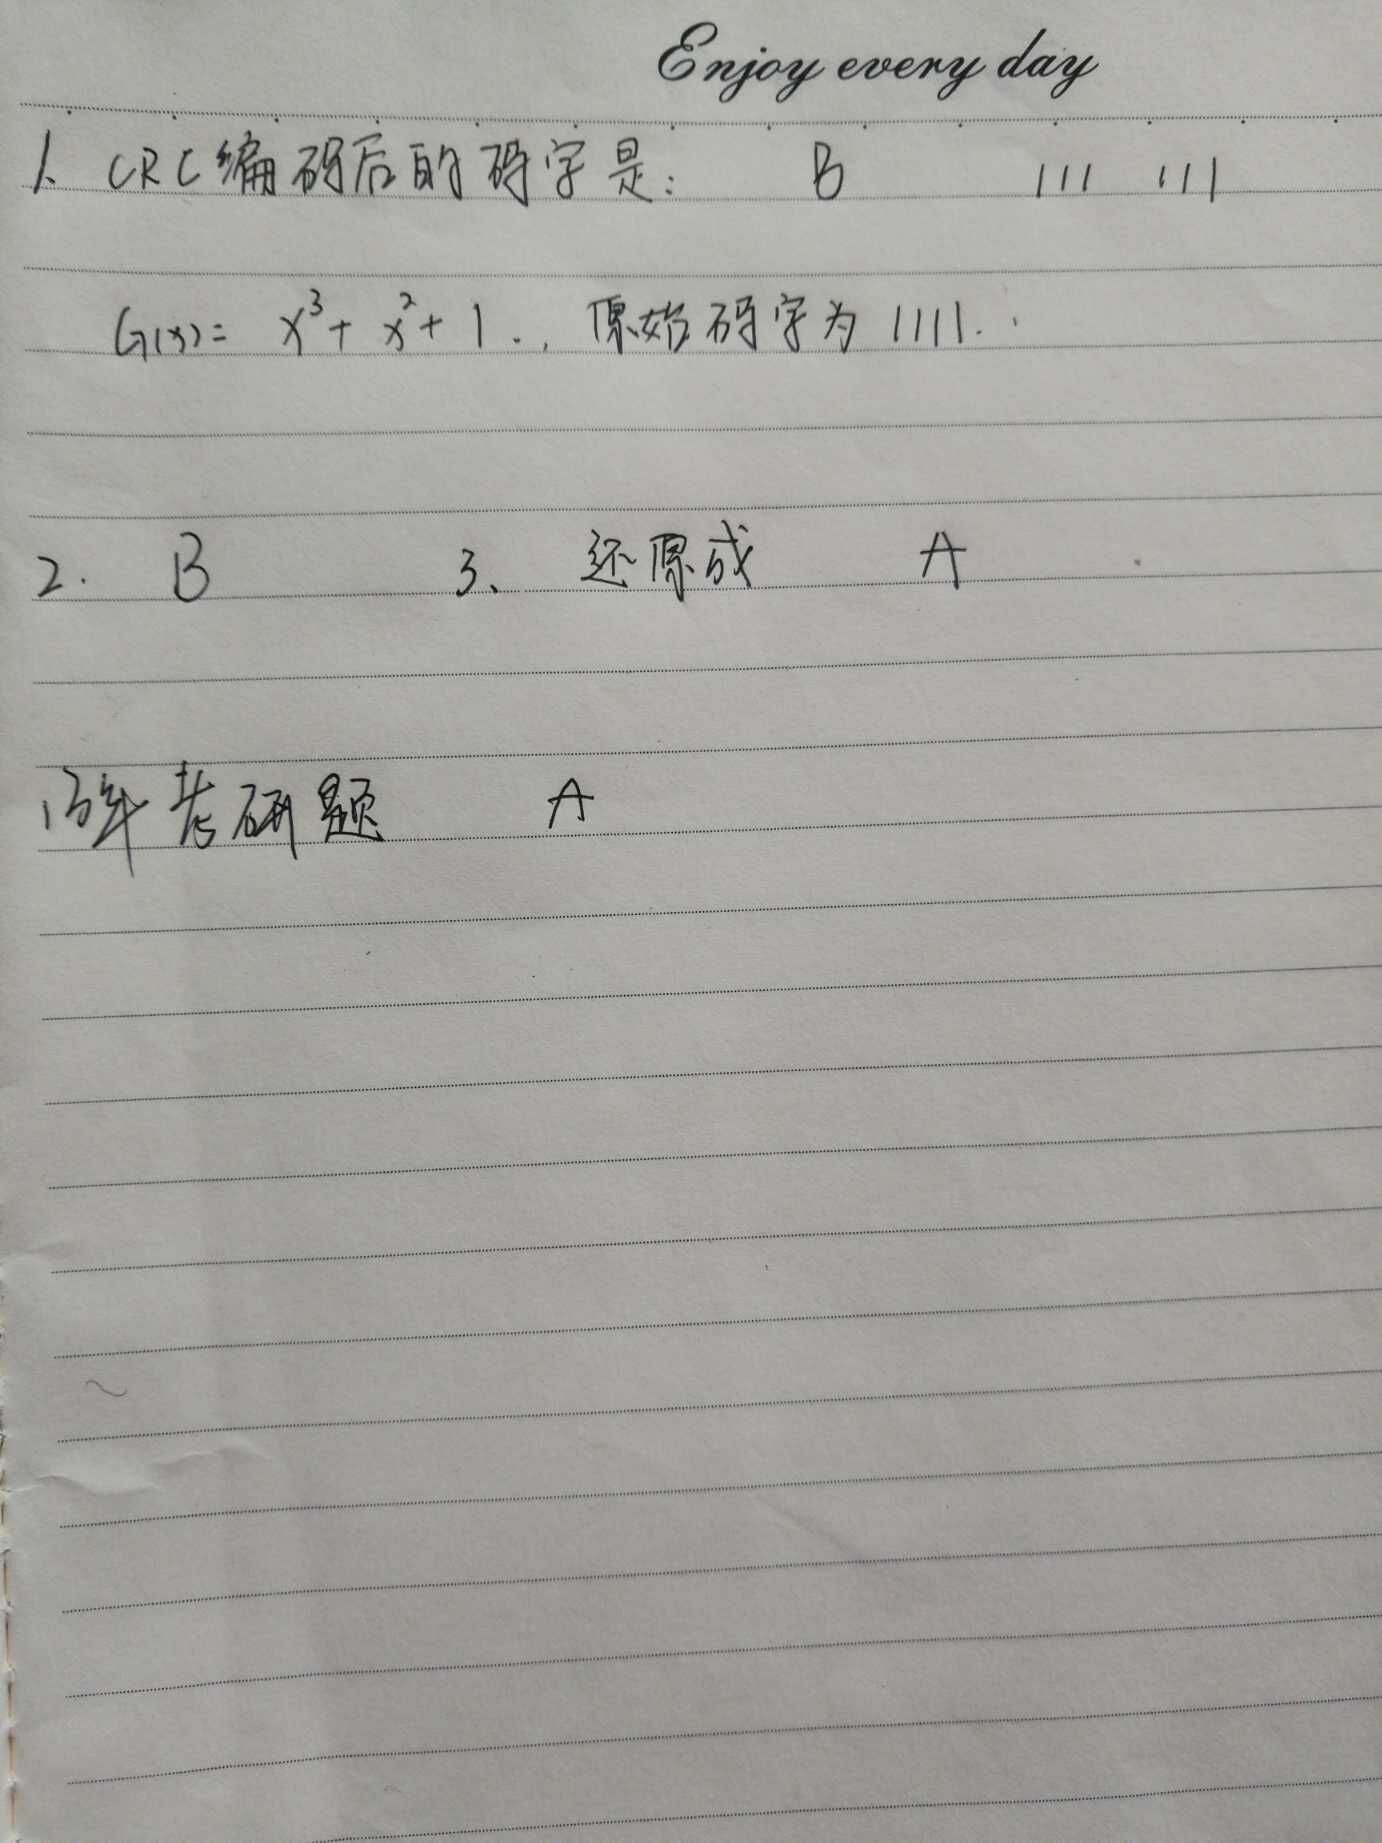 Enjoy every day
1. CRC编码后的码字是: B 111 111
G(x)= x³+ x²+1 .., 原始码字为1111..
2. B 3、还原成 A
13年考研题 A